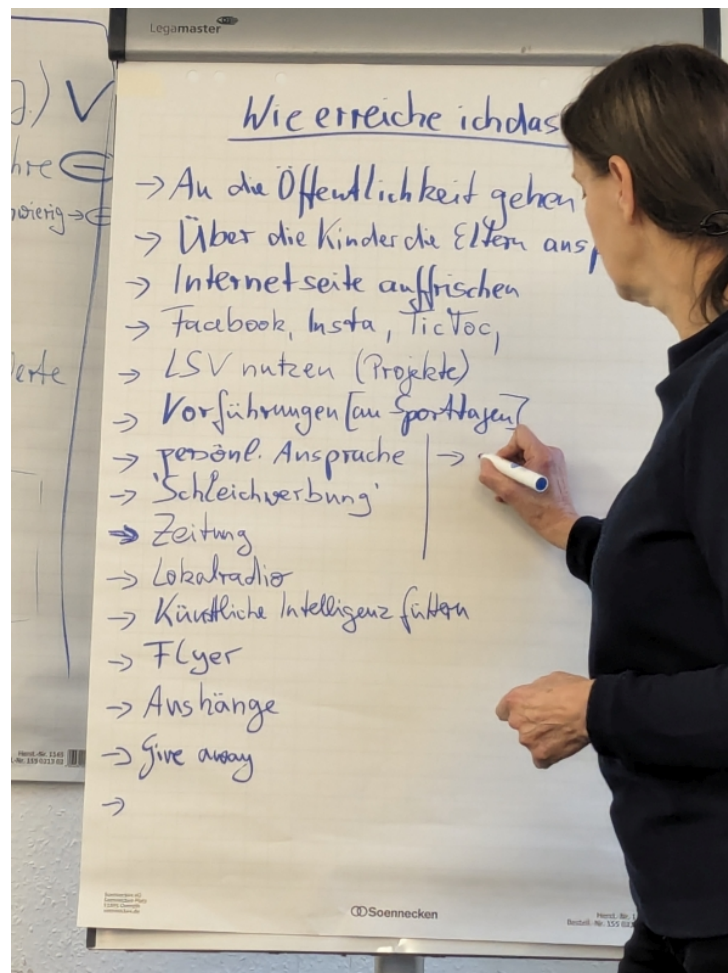 Legamaster
Wie erreiche ich das
→ An die Öffentlichkeit gehen
→ Über die Kinder die Eltern ansp
→ Internetseite auffrischen
→ Facebook, Insta, TicToc,
→ LSV nutzen (Projekte)
→ Vorführungen [an Sporttagen]
→ persönl. Ansprache | →
→ 'Schleichwerbung'
→ Zeitung
→ Lokalradio
→ Künstliche Intelligenz füttern
→ Flyer
→ Aushänge
→ Give away
→
Soennecken
V
hre
wierig →
erte